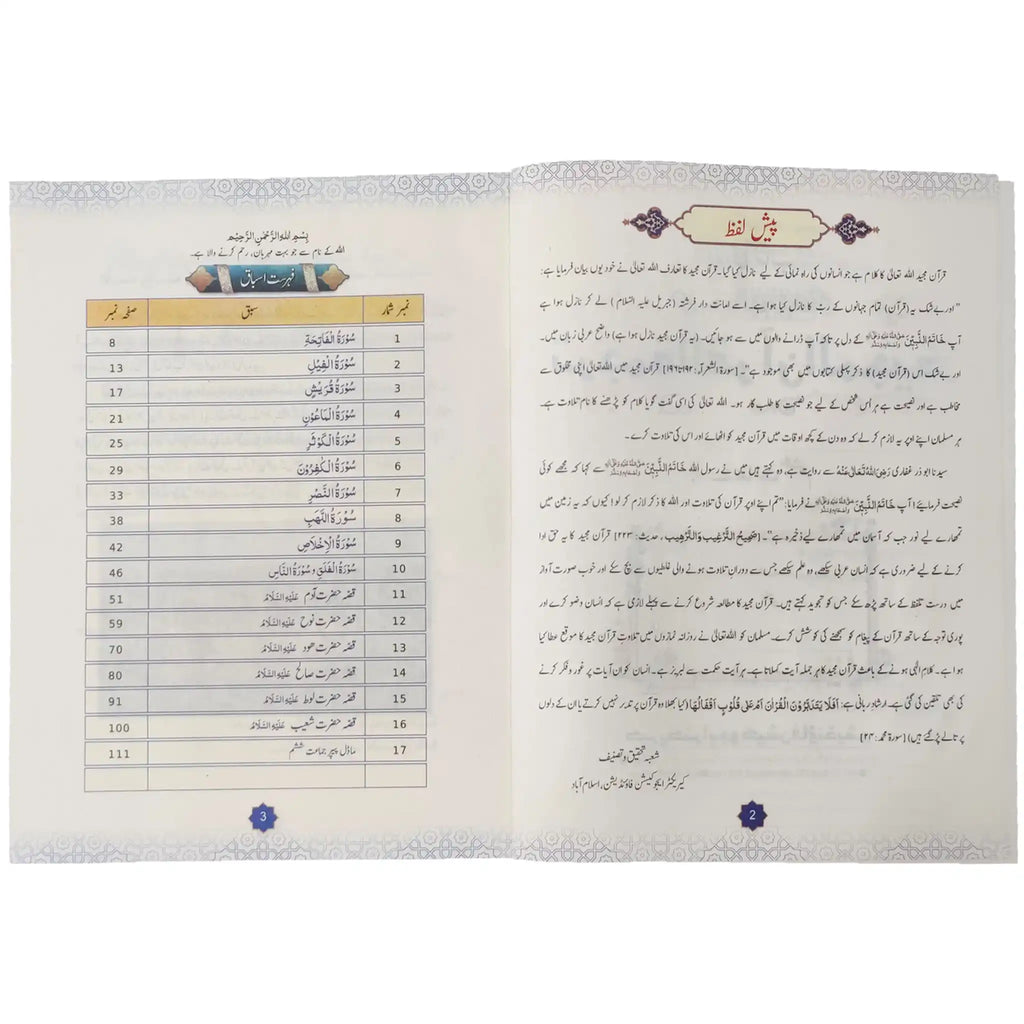 پیش لفظ
قرآن مجید اللہ تعالیٰ کا کلام ہے جو انسانوں کی راہ نمائی کے لیے نازل کیا گیا۔ قرآن مجید کا تعارف اللہ تعالیٰ نے خود یوں بیان فرمایا ہے:
"اور بے شک یہ (قرآن) تمام جہانوں کے رب کا نازل کیا ہوا ہے۔ اسے امانت دار فرشتہ (جبریل علیہ السلام) لے کر نازل ہوا ہے
آپ خَاتَمُ النَّبِيّٖنَ صَلَّی اللہُ عَلَيْهِ وَعَلٰی آلِہٖ وَاَصْحَابِہٖ وَسَلَّمَ کے دل پر تاکہ آپ ڈرانے والوں میں سے ہو جائیں۔ (یہ قرآن مجید نازل ہوا ہے) واضح عربی زبان میں۔
اور بے شک اس (قرآن مجید) کا ذکر پہلی کتابوں میں بھی موجود ہے"۔ (سورۃ الشعرآء: ۱۹۲ تا ۱۹۶) قرآن مجید میں اللہ تعالیٰ اپنی مخلوق سے
مخاطب ہے اور نصیحت ہے ہر اُس شخص کے لیے جو نصیحت کا طلب گار ہو۔ اللہ تعالیٰ کی اسی گفت گو یا کلام کو پڑھنے کا نام تلاوت ہے۔
ہر مسلمان اپنے اوپر یہ لازم کر لے کہ وہ دن کے کچھ اوقات میں قرآن مجید کو اٹھائے اور اس کی تلاوت کرے۔
سیدنا ابو ذر غفاری رَضِیَ اللہُ تَعَالٰی عَنْہُ سے روایت ہے، وہ کہتے ہیں میں نے رسول اللہ خَاتَمُ النَّبِيّٖنَ صَلَّی اللہُ عَلَيْهِ وَعَلٰی آلِہٖ وَاَصْحَابِہٖ وَسَلَّمَ سے کہا کہ مجھے کوئی
نصیحت فرمائیے! آپ خَاتَمُ النَّبِيّٖنَ صَلَّی اللہُ عَلَيْهِ وَعَلٰی آلِہٖ وَاَصْحَابِہٖ وَسَلَّمَ نے فرمایا: "تم اپنے اوپر قرآن کی تلاوت اور اللہ کا ذکر لازم کر لو! کیوں کہ یہ زمین میں
تمھارے لیے نور جب کہ آسمان میں تمھارے لیے ذخیرہ ہے"۔ (صَحِیحُ التَّرْغِیب وَالتَّرْہِیب، حدیث: ۲۲۳) قرآن مجید کا یہ حق ادا
کرنے کے لیے ضروری ہے کہ انسان عربی سیکھے، وہ علم سیکھے جس سے دورانِ تلاوت ہونے والی غلطیوں سے بچ سکے اور خوب صورت آواز
میں درست تلفظ کے ساتھ پڑھ سکے جس کو تجوید کہتے ہیں۔ قرآن مجید کا مطالعہ شروع کرنے سے پہلے لازمی ہے کہ انسان وضو کرے اور
پوری توجہ کے ساتھ قرآن کے پیغام کو سمجھنے کی کوشش کرے۔ مسلمان کو اللہ تعالیٰ نے روزانہ نمازوں میں تلاوت قرآن مجید کا موقع عطا کیا
ہوا ہے۔ کلام الٰہی ہونے کے باعث قرآن مجید کا ہر جملہ آیت کہلاتا ہے۔ ہر آیت حکمت سے لبریز ہے۔ انسان کو ان آیات پر غور و فکر کرنے
کی بھی تلقین کی گئی ہے۔ ارشادِ ربانی ہے: اَفَلَا يَتَدَبَّرُوْنَ الْقُرْاٰنَ اَمْ عَلٰى قُلُوْبٍ اَقْفَالُهَا (کیا بھلا وہ قرآن پر تدبر نہیں کرتے یا ان کے دلوں
پر تالے پڑ گئے ہیں) (سورۃ محمد: ۲۴)
شعبہ تحقیق و تصنیف
کیریکٹر ایجوکیشن فاؤنڈیشن، اسلام آباد
2
بِسْمِ اللهِ الرَّحْمٰنِ الرَّحِيْمِ
اللہ کے نام سے جو بہت مہربان، رحم کرنے والا ہے۔
فہرست اسباق
نمبر شمار سبق صفحہ نمبر
1 سُوْرَةُ الْفَاتِحَةِ 8
2 سُوْرَةُ الْفِيْلِ 13
3 سُوْرَةُ قُرَيْشٍ 17
4 سُوْرَةُ الْمَاعُوْنِ 21
5 سُوْرَةُ الْكَوْثَرِ 25
6 سُوْرَةُ الْكٰفِرُوْنَ 29
7 سُوْرَةُ النَّصْرِ 33
8 سُوْرَةُ اللَّهَبِ 38
9 سُوْرَةُ الْاِخْلَاصِ 42
10 سُوْرَةُ الْفَلَقِ وَ سُوْرَةُ النَّاسِ 46
11 قصّہ حضرت آدم عَلَيْهِ السَّلَامُ 51
12 قصّہ حضرت نوح عَلَيْهِ السَّلَامُ 59
13 قصّہ حضرت ھود عَلَيْهِ السَّلَامُ 70
14 قصّہ حضرت صالح عَلَيْهِ السَّلَامُ 80
15 قصّہ حضرت لوط عَلَيْهِ السَّلَامُ 91
16 قصّہ حضرت شعیب عَلَيْهِ السَّلَامُ 100
17 ماڈل پیپر جماعت ششم 111
3